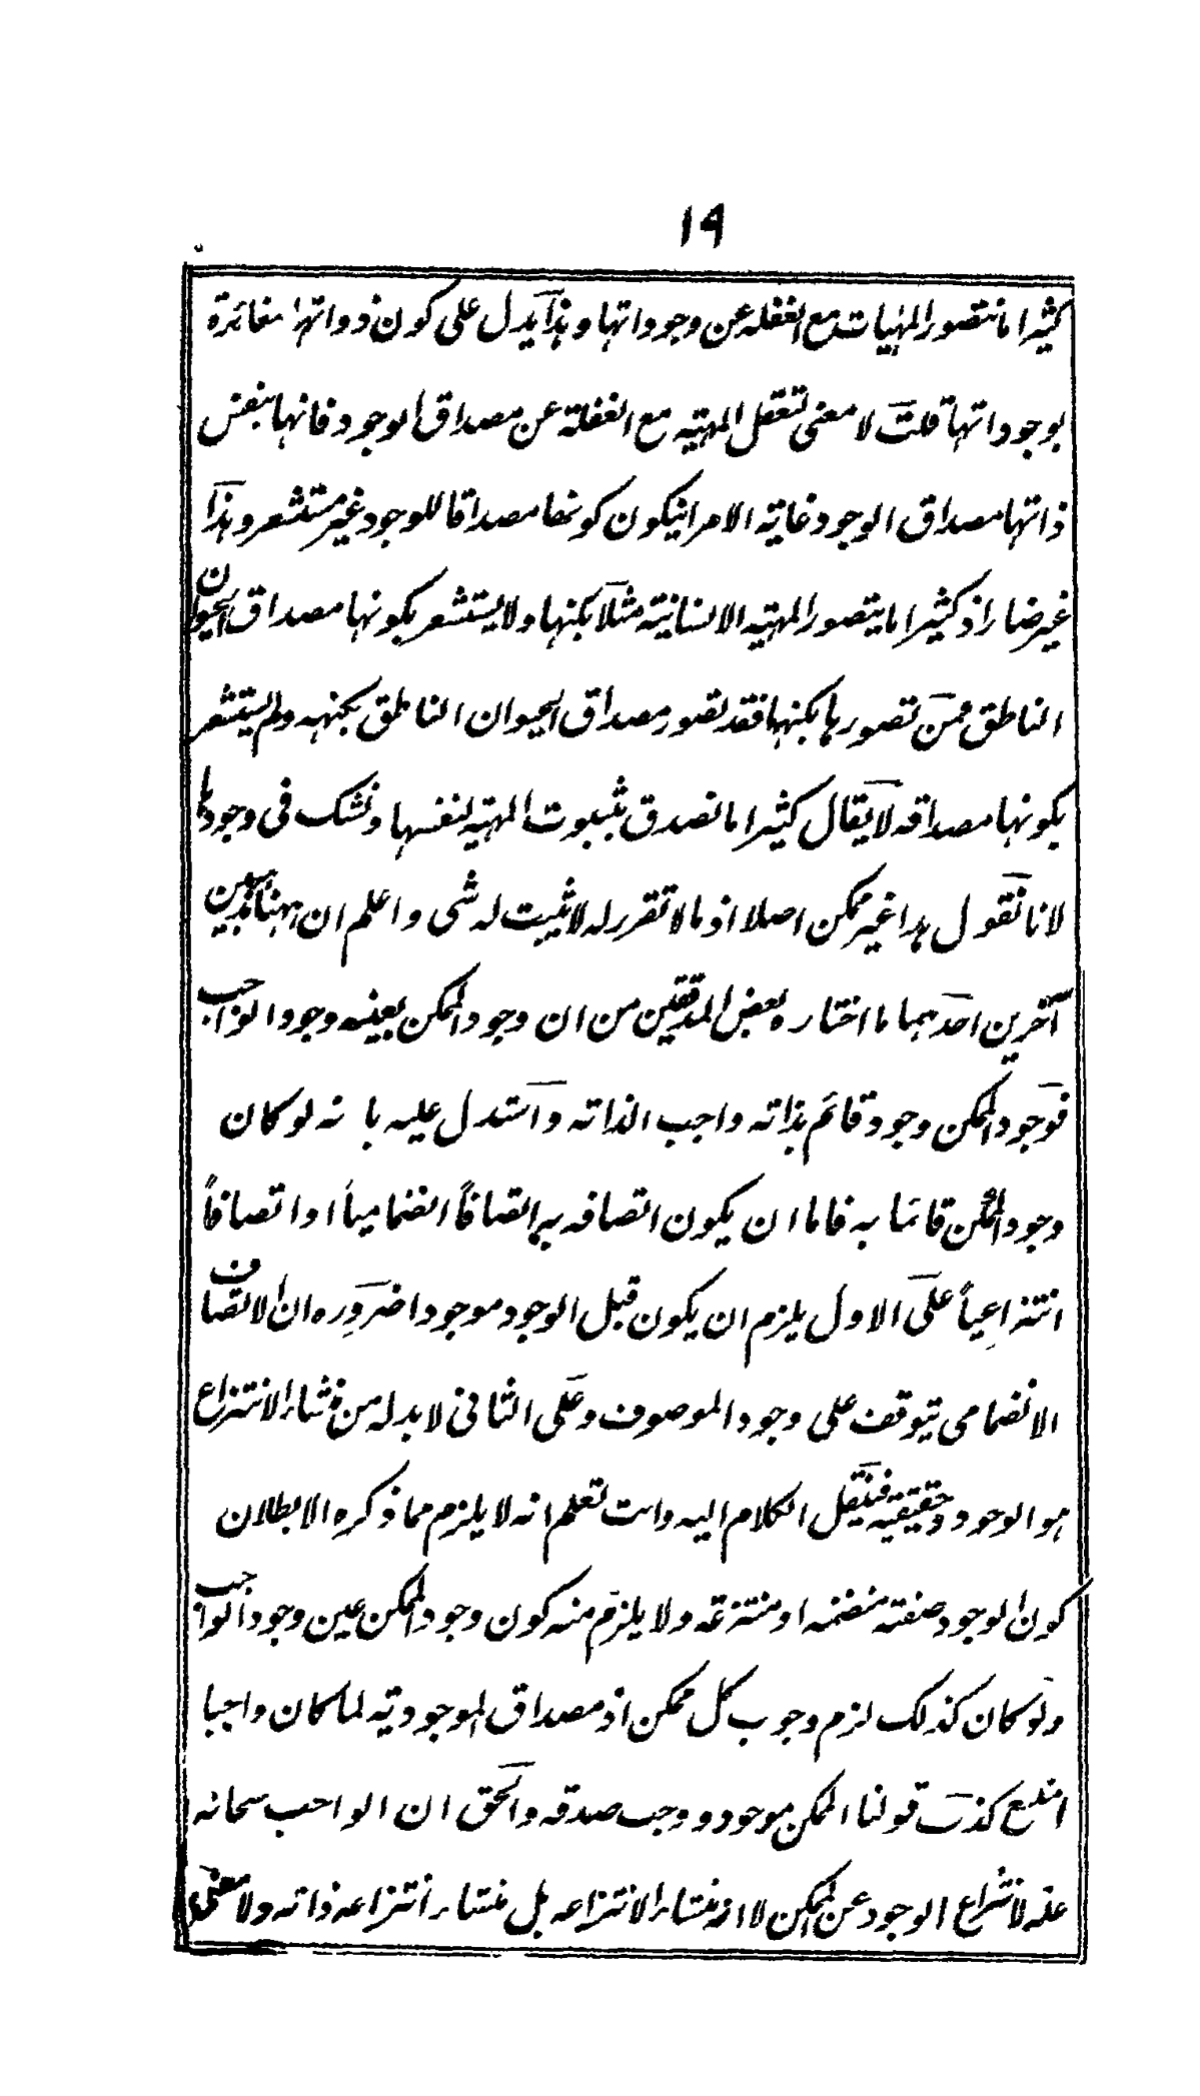 ١٩
كثيرا ما نتصور المهيات مع الغفلة عن وجوداتها وهذا يدل على كون ذواتها مغائرة
بوجوداتها قلت لا معنى لتعقل المهية مع الغفلة عن مصداق الوجود فانها بنفس
ذاتها مصداق الوجود غاية الامر انيكون كونها مصداقا للوجود غير مستشعر وهذا
غير ضار اذ كثيرا ما يتصور المهية الانسانية مثلا بكنهها ولا يستشعر بكونها مصداق الحيوان
الناطق فمن تصورها بكنهها فقد تصور مصداق الحيوان الناطق بكنهه ولم يستشعر
بكونها مصداقه لا يقال كثيرا ما نصدق بثبوت المهية لنفسها ونشك فى وجودها
لانا نقول هذا غير ممكن اصلا اذ ما لا تقرر له لا يثبت له شى واعلم ان ههنا مذهبين
آخرين احدهما ما اختاره بعض المدققين من ان وجود الممكن بعينه وجود الواجب
فوجود الممكن وجود قائم بذاته واجب لذاته واستدل عليه بانه لو كان
وجود الممكن قائما به فاما ان يكون اتصافه به اتصافاً انضمامياً او اتصافاً
انتزاعياً على الاول يلزم ان يكون قبل الوجود موجودا ضرورة ان الاتصاف
الانضمامى يتوقف على وجود الموصوف وعلى الثانى لا بد له من منشاء الانتزاع
هو الوجود حقيقية فننقل الكلام اليه وانت تعلم انه لا يلزم مما ذكره الا بطلان
كون الوجود صفته منضمه او منتزعة ولا يلزم منه كون وجود الممكن عين وجود الواجب
ولو كان كذلك لزم وجوب كل ممكن اذ مصداق الموجودية لما كان واجبا
امتنع كذب قولنا الممكن موجود ووجب صدقه والحق ان الواجب سبحانه
علة لانتزاع الوجود عن الممكن لا انه منشاء لانتزاعه بل منشاء انتزاعه ذاته ولا معنى